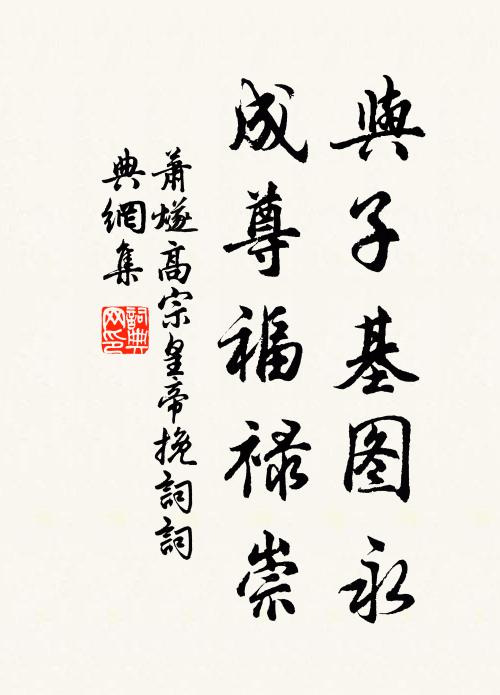 與子基图永
成尊福禄崇
萧燧高宗皇帝挽詞詞
典網集
詞典
网印